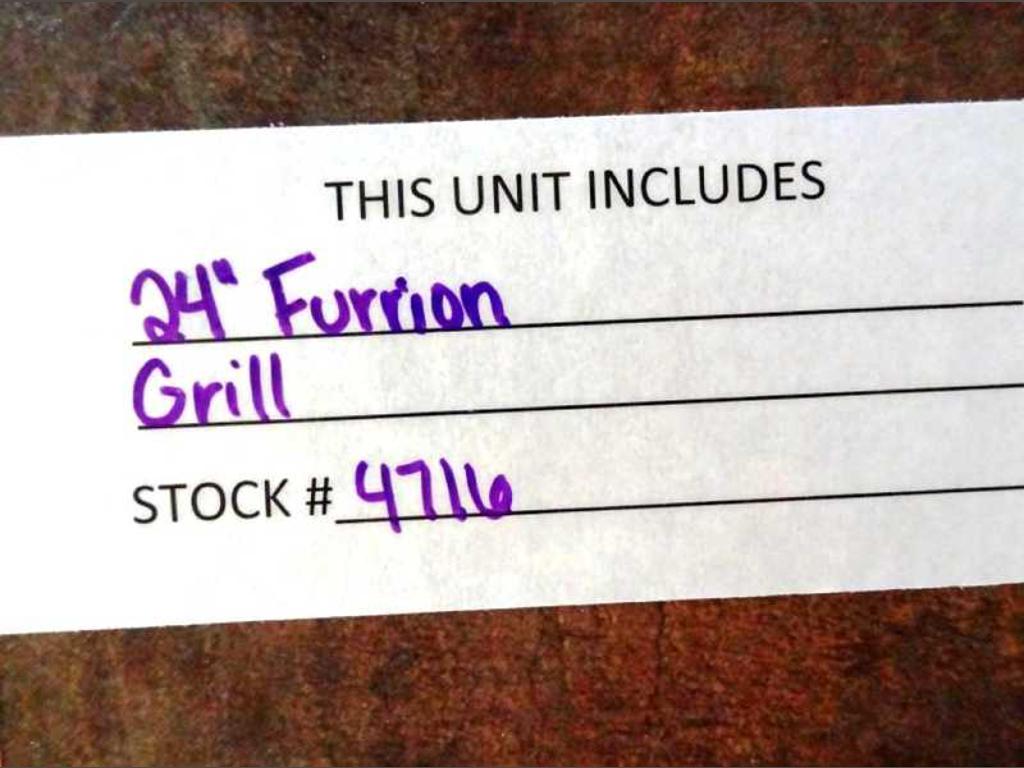 THIS UNIT INCLUDES
24" Furrion
Grill
STOCK # 4716